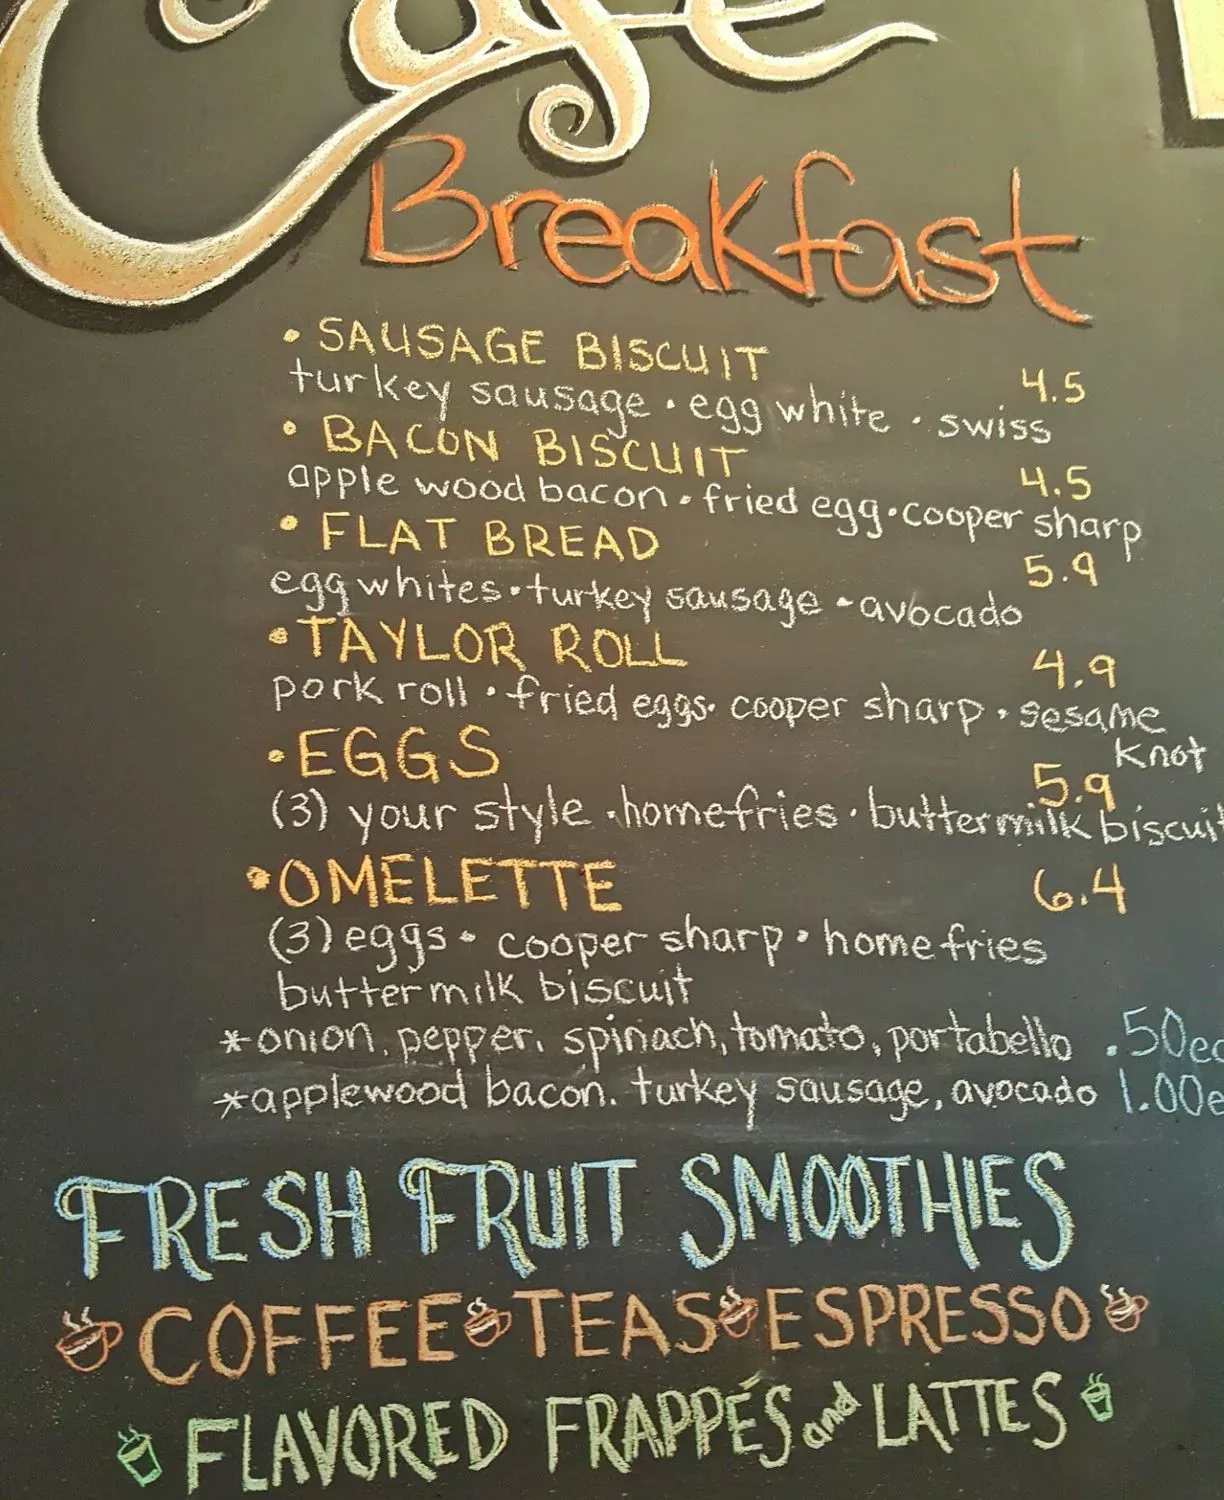 Café
Breakfast
• SAUSAGE BISCUIT 4.5
turkey sausage • egg white • swiss
• BACON BISCUIT 4.5
apple wood bacon • fried egg • cooper sharp
• FLAT BREAD 5.9
egg whites • turkey sausage • avocado
• TAYLOR ROLL 4.9
pork roll • fried eggs • cooper sharp • sesame
knot
• EGGS 5.9
(3) your style • homefries • buttermilk biscuit
• OMELETTE 6.4
(3) eggs • cooper sharp • home fries
buttermilk biscuit
*onion, pepper, spinach, tomato, portabello .50ea
*applewood bacon. turkey sausage, avocado 1.00e
FRESH FRUIT SMOOTHIES
COFFEE TEAS ESPRESSO
FLAVORED FRAPPÉS and LATTES